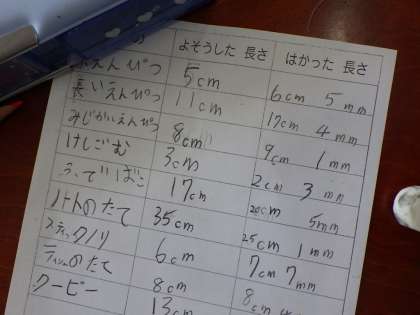 の よそうした 長さ はかった 長さ
えんぴつ 5cm 6cm 5mm
長いえんぴつ 11cm 17cm 4mm
みじかいえんぴつ 8cm 9cm 1mm
けしごむ 3cm 2cm 3mm
ふでばこ 17cm 20cm 5mm
ノートのたて 35cm 25cm 1mm
スティックノリ 6cm 7cm 7mm
ティッシュのたて 8cm 8cm
クーピー 13cm